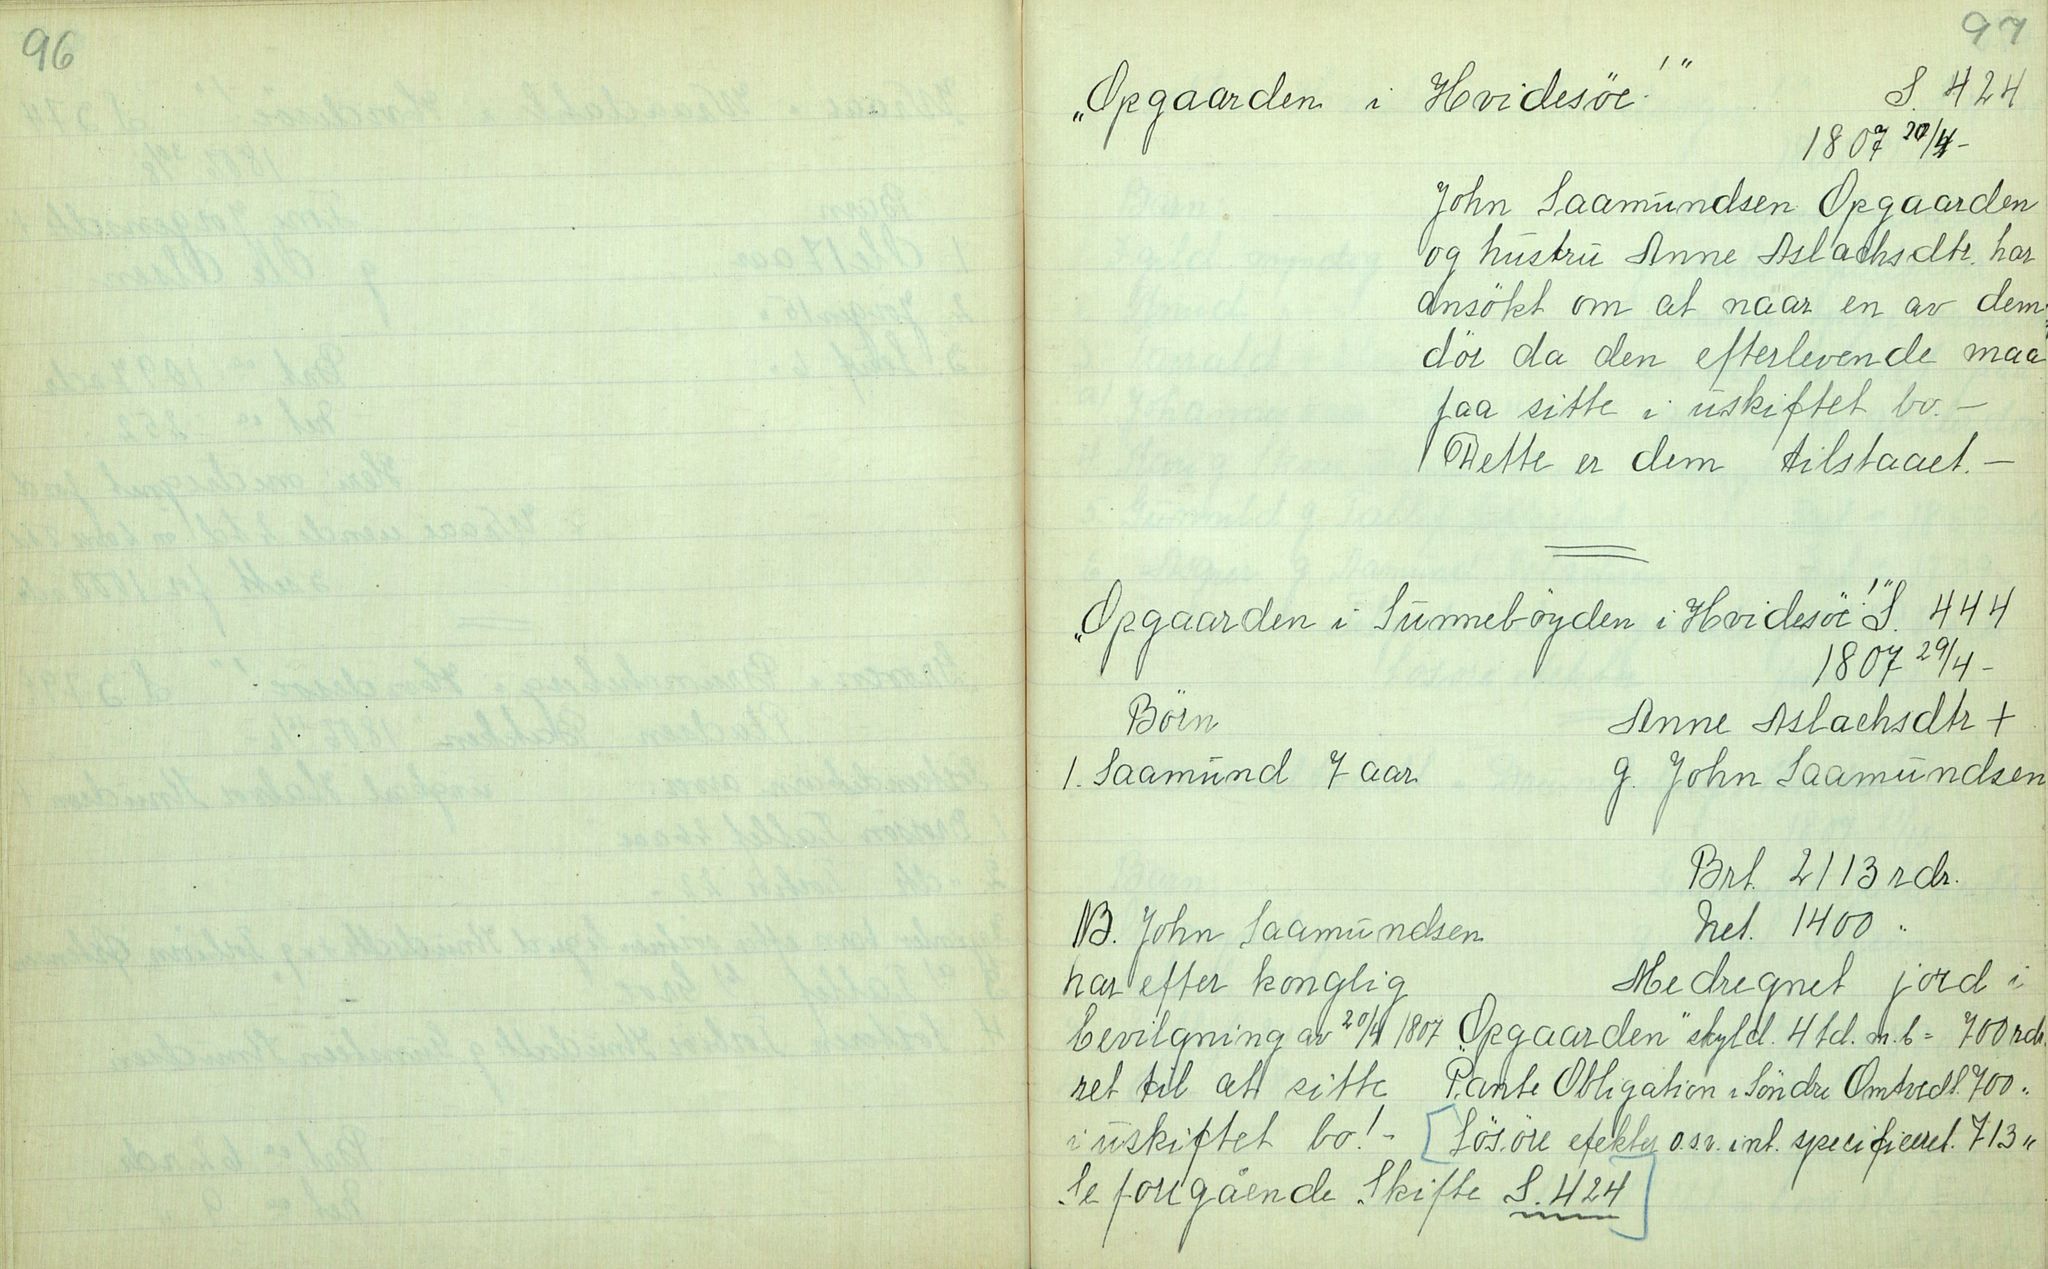 96
97
„Opgaarden i Hvidesöe!" S. 424
1807 20/4 -
John Saamundsen Opgaarden
og hustru Anne Aslachsdtr. har
ansökt om at naar en av dem
dör da den efterlevende maa
faa sitte i uskiftet bo. -
Dette er dem tilstaaet. -
„Opgaarden i Sunneböyden i Hvidesöe!" S. 444
1807 29/4 -
Börn Anne Aslachsdtr +
1. Saamund 7 aar g. John Saamundsen
Brt. 2113 rdr.
NB. John Saamundsen Net. 1400 "
har efter konglig Medregnet jord i
bevilgning av 20/4 1807 „Opgaarden" skyld. 4 td. m.b = 700 rdr.
ret til at sitte Pante Obligation i Söndre Omtvedt. 700 "
i uskiftet bo! - Lösöre efekter o.s.v. int. specificeret. 713 "
Se forigående Skifte S. 424